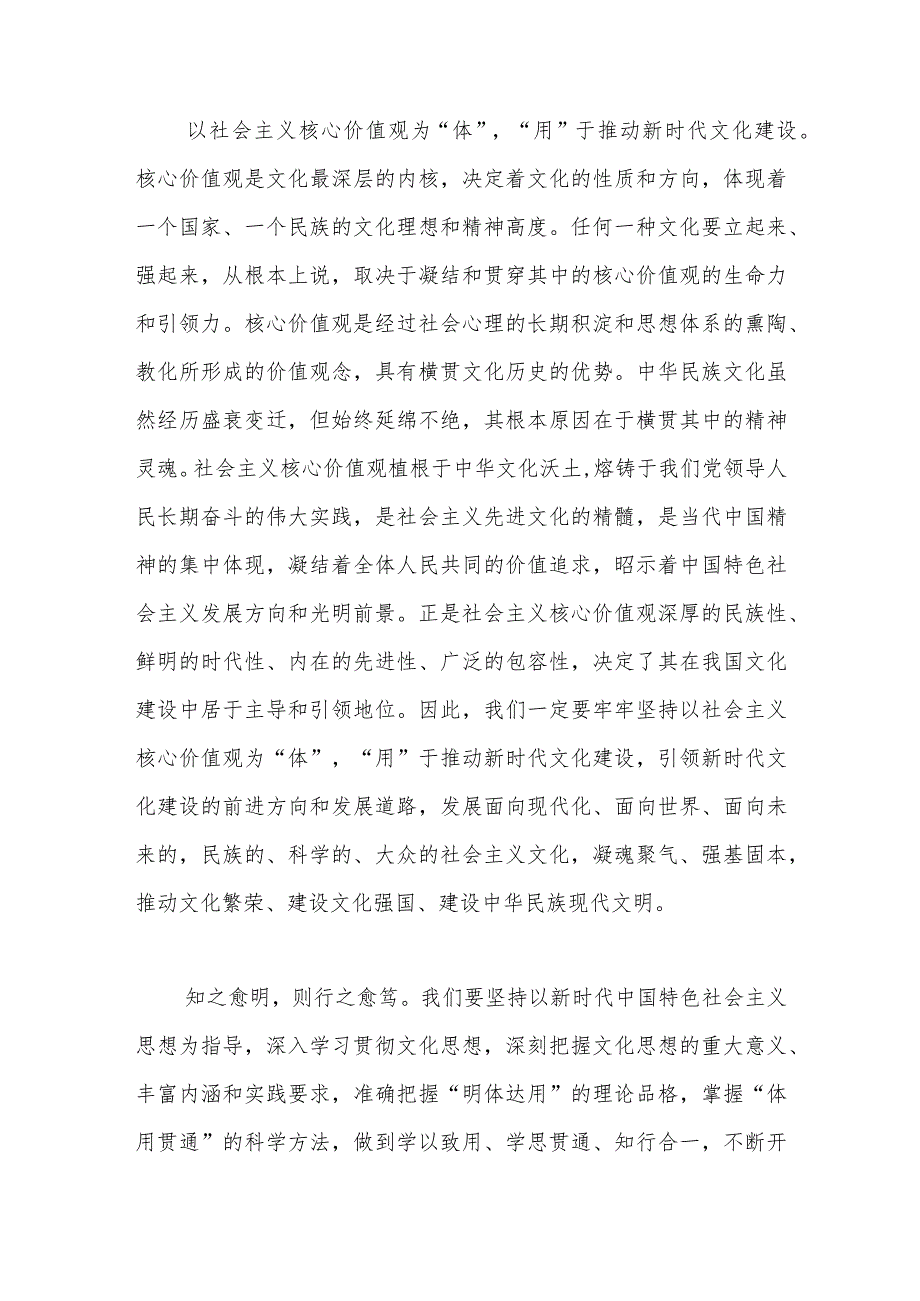 以社会主义核心价值观为“体”，“用”于推动新时代文化建设。
核心价值观是文化最深层的内核，决定着文化的性质和方向，体现着
一个国家、一个民族的文化理想和精神高度。任何一种文化要立起来、
强起来，从根本上说，取决于凝结和贯穿其中的核心价值观的生命力
和引领力。核心价值观是经过社会心理的长期积淀和思想体系的熏陶、
教化所形成的价值观念，具有横贯文化历史的优势。中华民族文化虽
然经历盛衰变迁，但始终延绵不绝，其根本原因在于横贯其中的精神
灵魂。社会主义核心价值观植根于中华文化沃土,熔铸于我们党领导人
民长期奋斗的伟大实践，是社会主义先进文化的精髓，是当代中国精
神的集中体现，凝结着全体人民共同的价值追求，昭示着中国特色社
会主义发展方向和光明前景。正是社会主义核心价值观深厚的民族性、
鲜明的时代性、内在的先进性、广泛的包容性，决定了其在我国文化
建设中居于主导和引领地位。因此，我们一定要牢牢坚持以社会主义
核心价值观为“体”，“用”于推动新时代文化建设，引领新时代文
化建设的前进方向和发展道路，发展面向现代化、面向世界、面向未
来的，民族的、科学的、大众的社会主义文化，凝魂聚气、强基固本，
推动文化繁荣、建设文化强国、建设中华民族现代文明。
知之愈明，则行之愈笃。我们要坚持以新时代中国特色社会主义
思想为指导，深入学习贯彻文化思想，深刻把握文化思想的重大意义、
丰富内涵和实践要求，准确把握“明体达用”的理论品格，掌握“体
用贯通”的科学方法，做到学以致用、学思贯通、知行合一，不断开